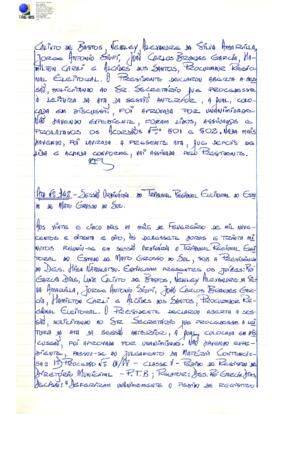 CELITO DE BASTOS, NEWLEY ALEXANDRE DA SILVA AMARILHA,
JORGE ANTONIO SIUFI, JOSÉ CARLOS BRANDES GARCIA, HA-
MILTON CARLI E ALCIDES DOS SANTOS, PROCURADOR REGIO-
NAL ELEITORAL. O PRESIDENTE DECLAROU ABERTA A SES-
SÃO, SOLICITANDO AO SR. SECRETÁRIO QUE PROCEDESSE
A LEITURA DA ATA DA SESSÃO ANTERIOR, A QUAL, COLO-
CADA EM DISCUSSÃO, FOI APROVADA POR UNANIMIDADE.
NÃO HAVENDO EXPEDIENTE, FORAM LIDOS, ASSINADOS E
PUBLICADOS OS ACÓRDÃOS NºS 801 E 802. NADA MAIS
HAVENDO, FOI LAVRADA A PRESENTE ATA, QUE DEPOIS DE
LIDA E ACHADA CONFORME, VAI ASSINADA PELO PRESIDENTE.
ATA Nº - SESSÃO ORDINÁRIA DO TRIBUNAL REGIONAL ELEITORAL DO ESTA-
DO DE MATO GROSSO DO SUL.
AOS VINTE E CINCO DIAS DO MÊS DE FEVEREIRO DE MIL NOVE-
CENTOS E OITENTA E OITO, ÀS DEZESSETE HORAS E TRINTA MI-
NUTOS REUNIU-SE EM SESSÃO ORDINÁRIA O TRIBUNAL REGIONAL ELEI-
TORAL DO ESTADO DE MATO GROSSO DO SUL, SOB A PRESIDÊNCIA
DO DES. ESTIVERAM PRESENTES OS JUÍZES: RUI
GARCIA DIAS, CELITO DE BASTOS, NEWLEY ALEXANDRE DA SIL-
VA AMARILHA, JORGE ANTONIO SIUFI, JOSÉ CARLOS BRANDES GAR-
CIA, HAMILTON CARLI E ALCIDES DOS SANTOS, PROCURADOR REGIO-
NAL ELEITORAL. O PRESIDENTE DECLAROU ABERTA A SES-
SÃO, SOLICITANDO AO SR. SECRETÁRIO QUE PROCEDESSE A LEI-
TURA DA ATA DA SESSÃO ANTERIOR, A QUAL, COLOCADA EM DIS-
CUSSÃO, FOI APROVADA POR UNANIMIDADE. NÃO HAVENDO EXPE-
DIENTE, PASSOU-SE AO JULGAMENTO DA MATÉRIA CONTENCIO-
SA: PROCESSO Nº - CLASSE V - PEDIDO DE REGISTRO DE
DIRETÓRIO MUNICIPAL - P.T.B; RELATOR: DES. RUI GARCIA DIAS;
DECISÃO: DEFERIRAM UNANIMEMENTE O PEDIDO DE REGISTRO